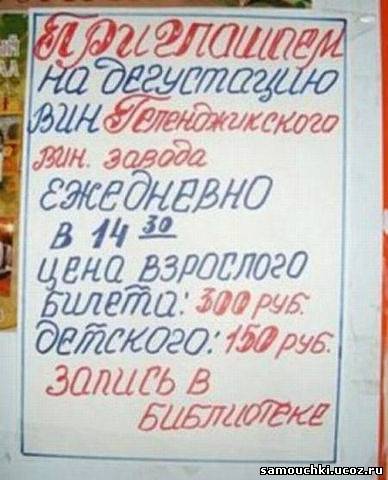 Приглашаем
на дегустацию
вин Геленджикского
вин. завода
ежедневно
в 14 30
цена взрослого
билета: 300 руб.
детского: 150 руб.
Запись в
библиотеке
samouchki.ucoz.ru